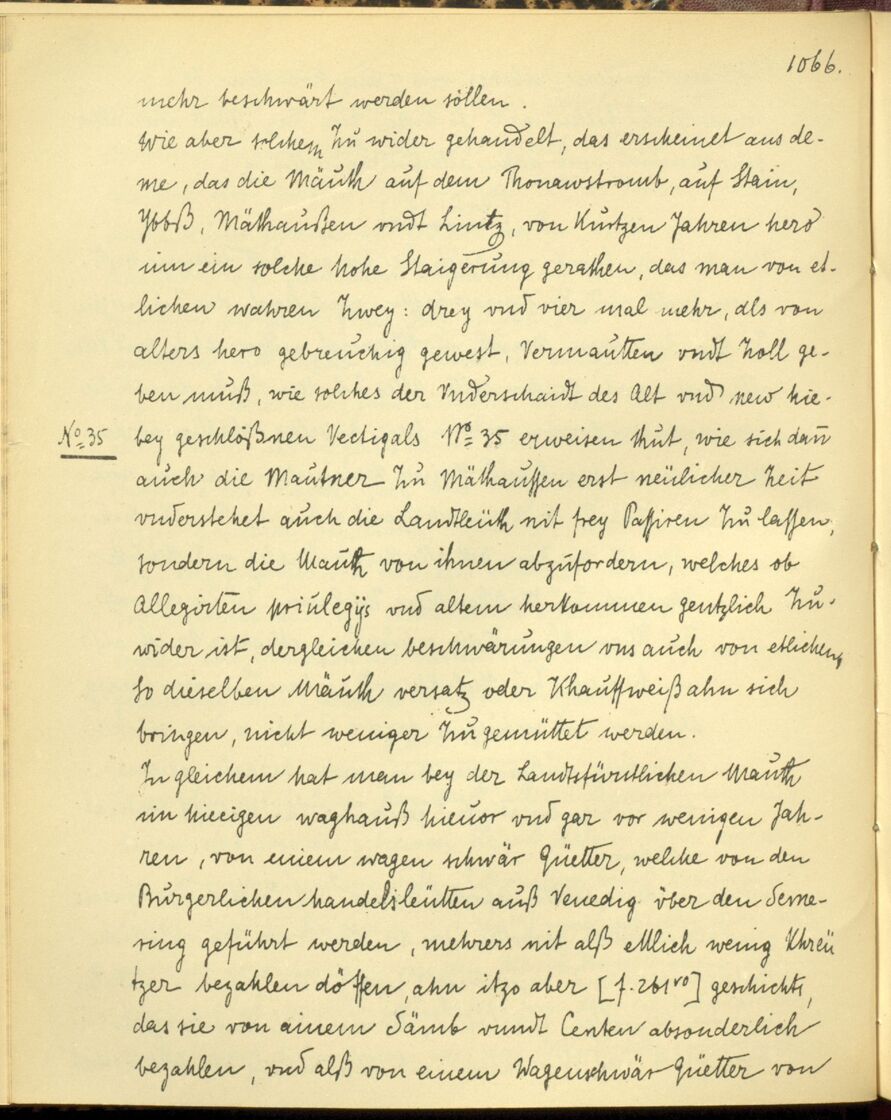 1066.
mehr beschwärt werden söllen.
Wie aber solchem zu wider gehandelt, das erscheinet aus de-
me, das die Mäuth auf dem Thonawstromb, auf Stain,
Ybbß, Mäthaußen vndt Lintz, von Kurtzen Jahren hero
um ein solche hohe Staigerung gerathen, das man von et-
lichen wahren zwey: drey vnd vier mal mehr, als von
alters hero gebreuchig gewest, Vermautten vndt Zoll ge-
ben muß, wie solches der Vnderschaidt des Alt vnd new hie-
No 35
bey geschloßnen Vectigals No 35 erweisen thut, wie sich dan̄
auch die Mautner zu Mäthaussen erst neülicher Zeit
vnderstehet auch die Landtleüth nit frey Passiren zu lassen,
sondern die Mauth von ihnen abzufordern, welches ob
Allegirten priuilegijs vnd altem herkommen gentzlich zu-
wider ist, dergleichen beschwärungen vns auch von etlichen,
So dieselben Mäuth versatz oder Khauffweiß ahn sich
bringen, nicht weniger zugemüttet werden.
In gleichem hat man bey der Landtsfürstlichen Mauth
im hieeigen waghauß hieuor vnd gar vor wenigen Jah-
ren, von einem wagen schwär Güetter, welche von den
Burgerlichen handelsleütten auß Venedig über den Seme-
ring geführt werden, mehrers nit alß ettlich wenig Khreü
tzer bezahlen döffen, ahn itzo aber [f. 261vo] geschichts,
das sie von ainem Sämb vnndt Centen absonderlich
bezahlen, vnd alß von einem Wagenschwär Güetter von